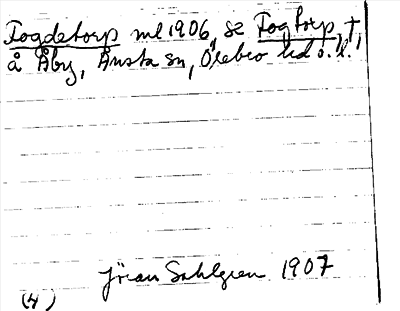 Fogdetorp ml 1906, se Fogtorp, †,
å Åby, Ånsta sn, Örebro hd ö. l.
Jöran Sahlgren 1907
(4)